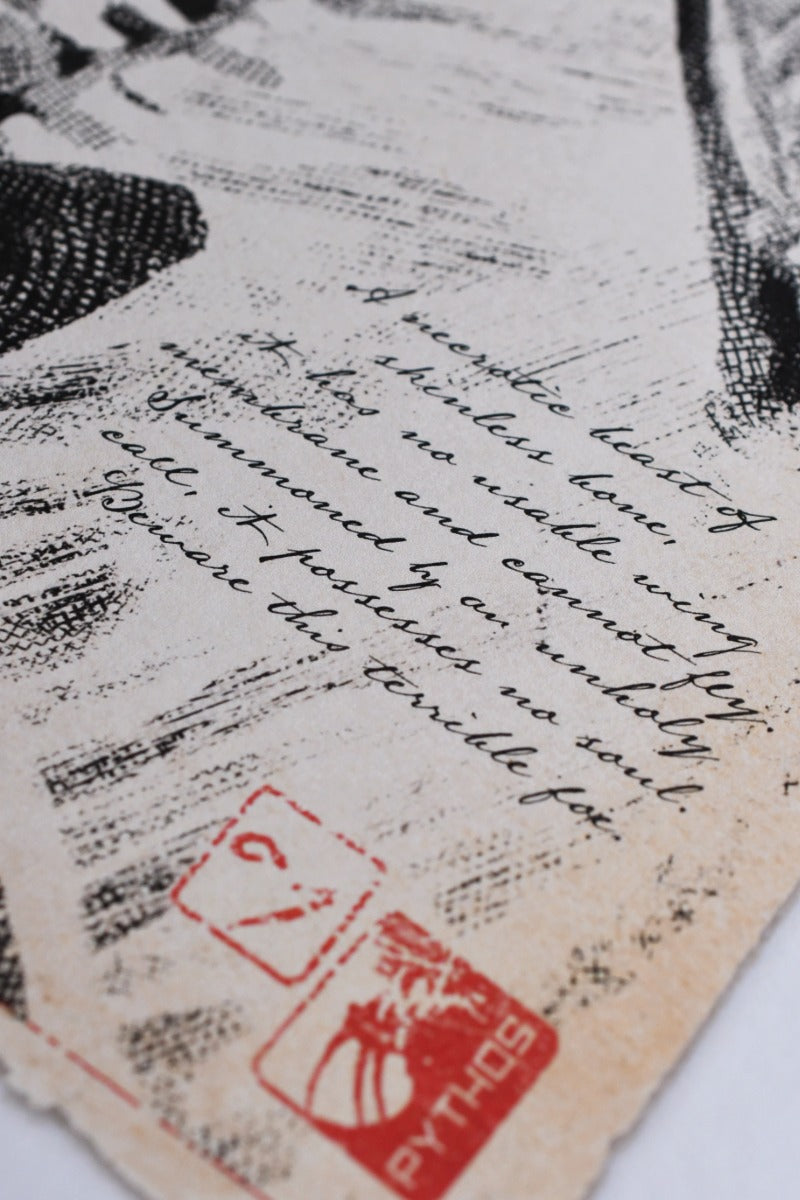 A necrotic beast of
skinless bone,
it has no usable wing
membrane and cannot fly.
Summoned by an unholy
call, it possesses no soul.
Beware this terrible foe.
PYTHOS